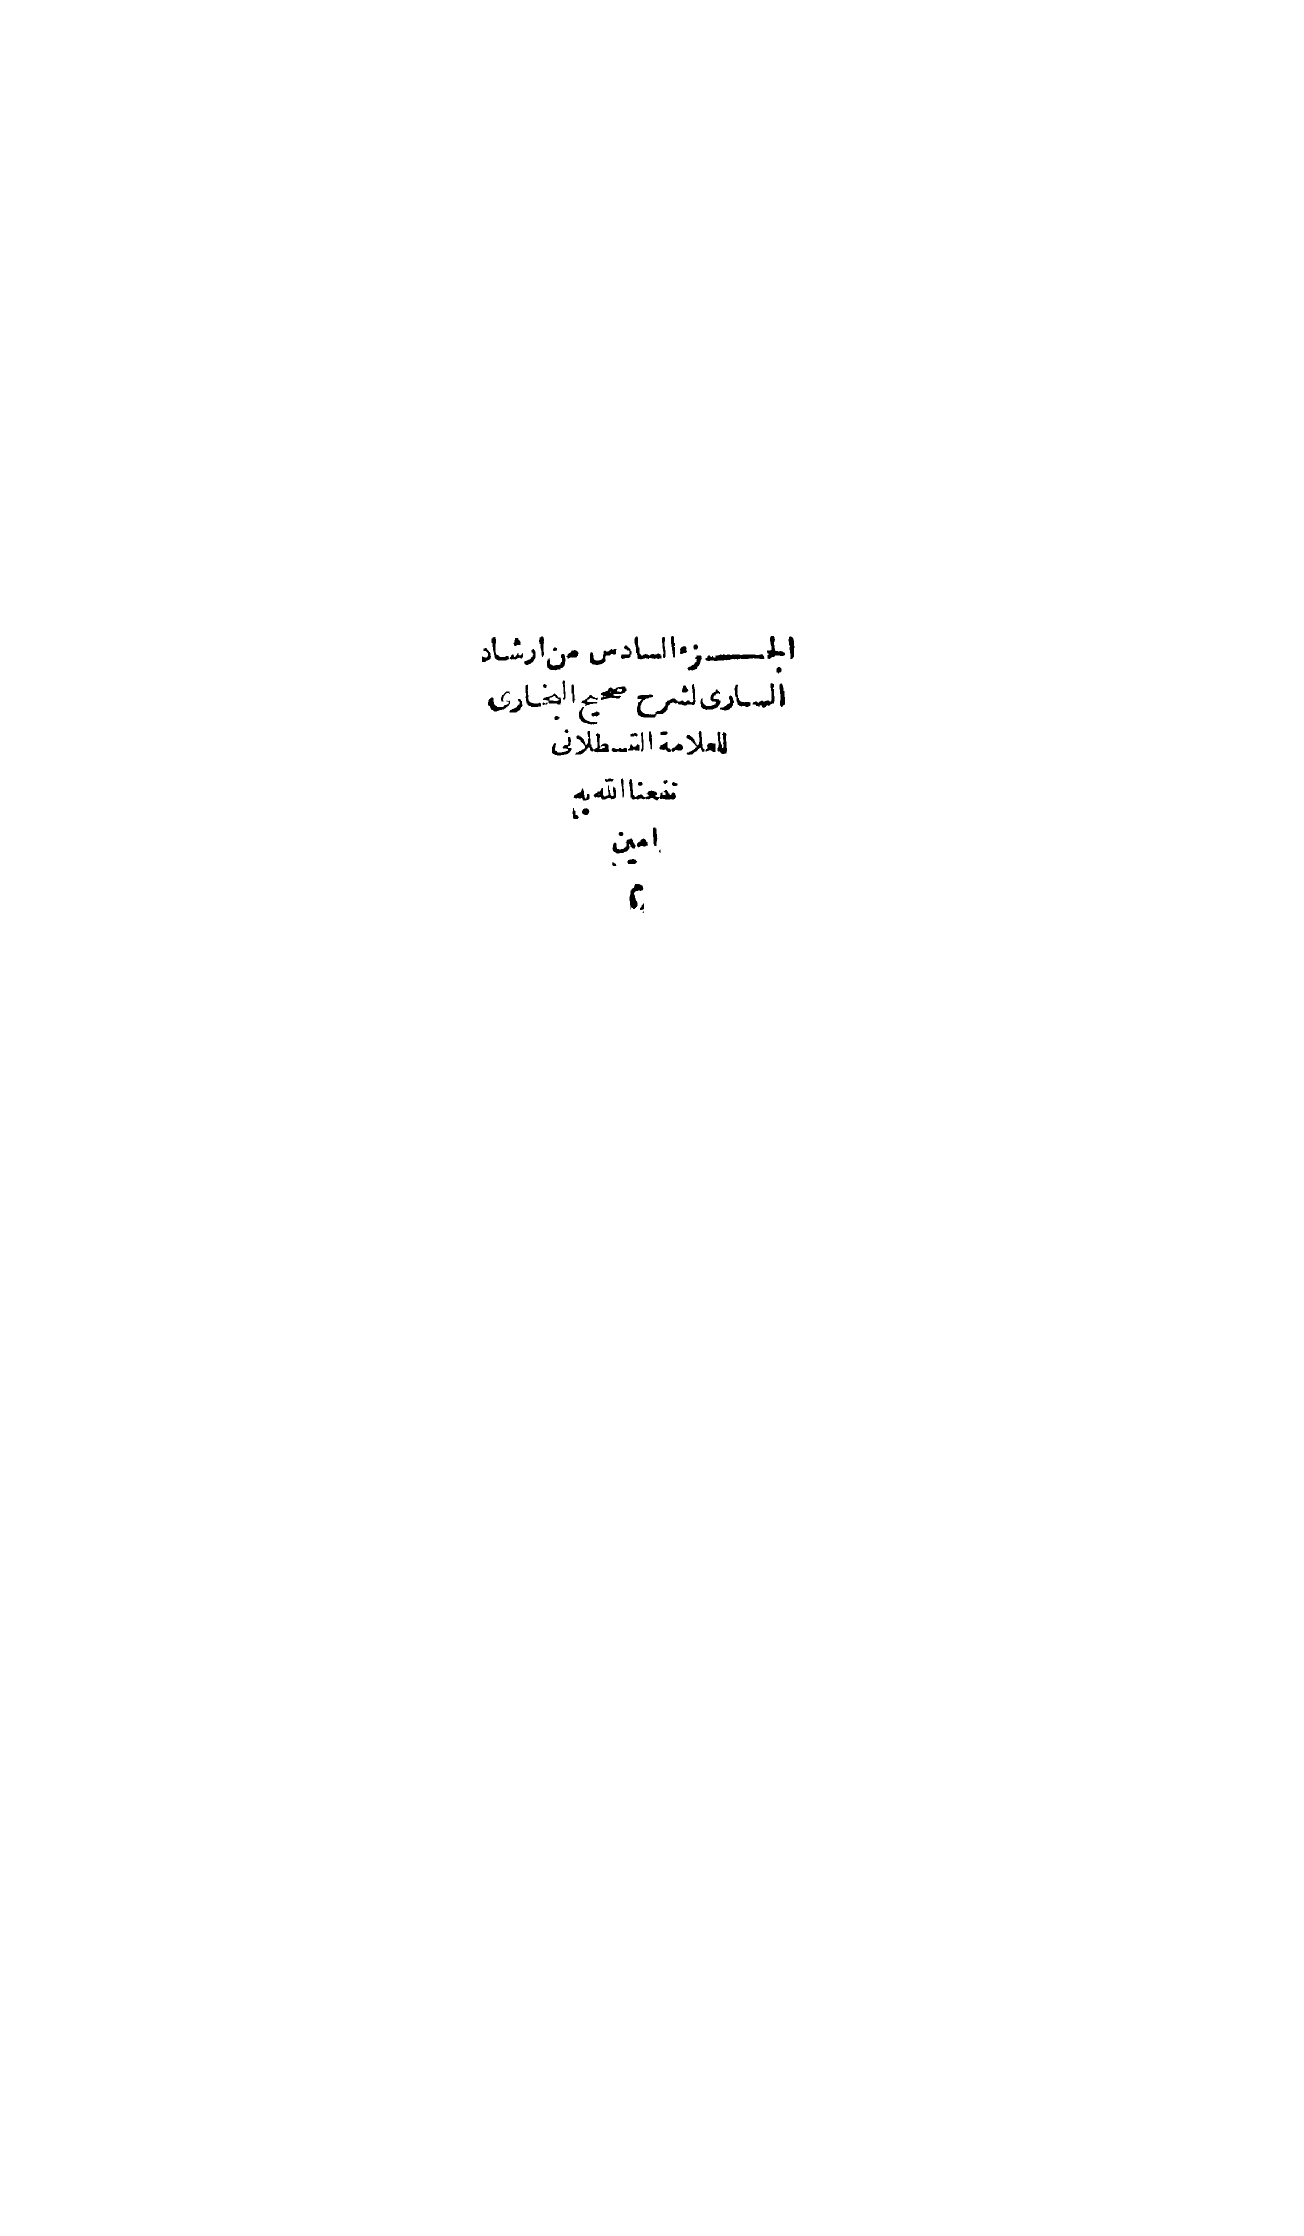 الجـــــزء السادس من ارشاد
السارى لشرح صحيح البخارى
للعلامة القسطلانى
نفعنا الله به
امين
م